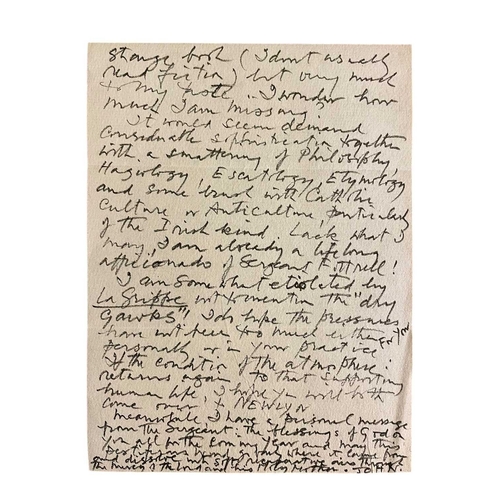 strange book (I dont usually
read fiction) but very much
to my taste .. I wonder how
much I am missing.
It would seem demand
considerable sophistication together
with a smattering of Philosophy,
Hagiology Escatology, Etymology
and some brush with Catholic
Culture or Anticulture, particularly
of the Irish kind. Lack what I
may, I am already a lifelong
afficionado of Sergeant Fottrell!
I am somewhat etiolated by
La Grippe not to mention the "dry
GAWKS"! I do hope the pressures
have not been too much either for you
personally or in your practice.
If the condition of the atmosphere
returns again to that supporting
human life I hope you will both
come over to NEWLYN
Meanwhile I have a personal message
from the Sergeant: The blessings of God on
you all for the coming year and may this
where it
and dissolve
the